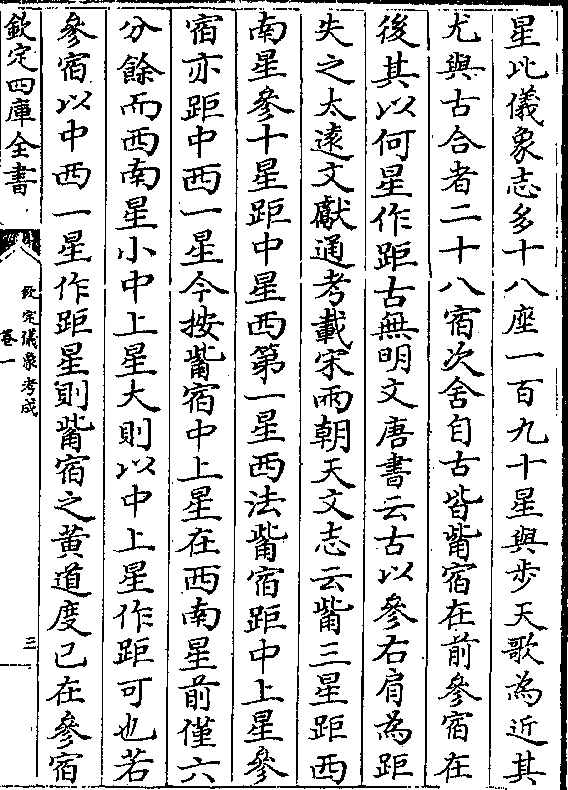 星比儀象志多十八座一百九十星與步天歌為近其
尤與古合者二十八宿次舍自古皆觜宿在前參宿在
後其以何星作距古無明文唐書云古以參右肩為距
失之太遠文獻通考載宋兩朝天文志云觜三星距西
南星參十星距中星西第一星西法觜宿距中上星參
宿亦距中西一星今按觜宿中上星在西南星前僅六
分餘而西南星小中上星大則以中上星作距可也若
參宿以中西一星作距星則觜宿之黄道度已在參宿
欽定四庫全書
欽定儀象考成
卷一
三